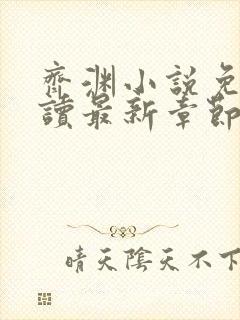 齊淵小說免
讀最新章節
晴天陰天不下